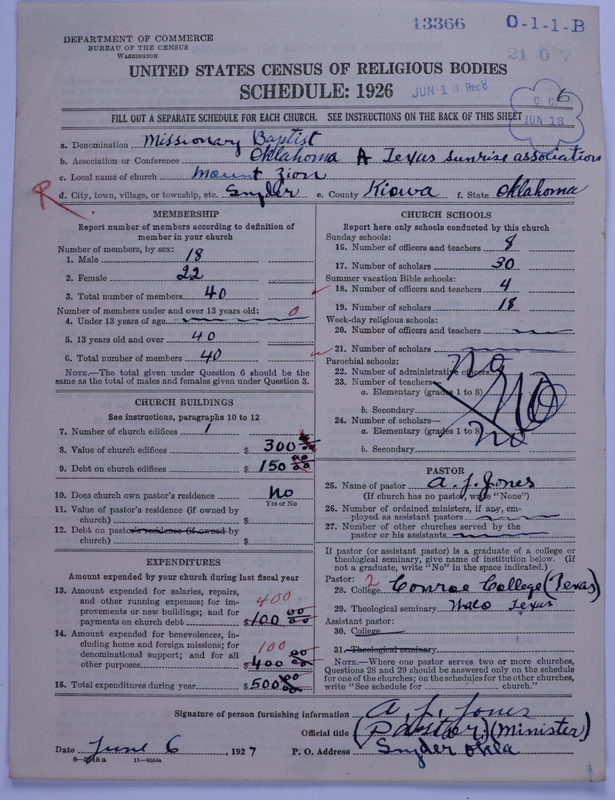 13366 O-1-1-B
DEPARTMENT OF COMMERCE
BUREAU OF THE CENSUS
WASHINGTON
UNITED STATES CENSUS OF RELIGIOUS BODIES
SCHEDULE: 1926
JUN 13 Rec'd
C. C. 6
JUN 13
FILL OUT A SEPARATE SCHEDULE FOR EACH CHURCH. SEE INSTRUCTIONS ON THE BACK OF THIS SHEET
a. Denomination Missionary Baptist
b. Association or Conference Oklahoma A Texas sunrise association
c. Local name of church Mount Zion
R d. City, town, village, or township, etc. Snyder e. County Kiowa f. State Oklahoma
MEMBERSHIP
Report number of members according to definition of
member in your church
Number of members, by sex:
1. Male 18
2. Female 22
3. Total number of members 40
Number of members under and over 13 years old:
4. Under 13 years of age 0
5. 13 years old and over 40
6. Total number of members 40
NOTE.—The total given under Question 6 should be the
same as the total of males and females given under Question 3.
CHURCH BUILDINGS
See instructions, paragraphs 10 to 12
7. Number of church edifices 1
8. Value of church edifices $ 300 00
9. Debt on church edifices $ 150 00
10. Does church own pastor's residence No
Yes or No
11. Value of pastor's residence (if owned by
church) $
12. Debt on pastor's residence (if owned by
church) $
EXPENDITURES
Amount expended by your church during last fiscal year
13. Amount expended for salaries, repairs,
and other running expenses; for im-
provements or new buildings; and for
payments on church debt 400 $ 100 00
14. Amount expended for benevolences, in-
cluding home and foreign missions; for
denominational support; and for all
other purposes 100 $ 400 00
15. Total expenditures during year $ 500 00
CHURCH SCHOOLS
Report here only schools conducted by this church
Sunday schools:
16. Number of officers and teachers 8
17. Number of scholars 30
Summer vacation Bible schools:
18. Number of officers and teachers 4
19. Number of scholars 18
Week-day religious schools:
20. Number of officers and teachers
21. Number of scholars
Parochial schools:
22. Number of administrative officers no
23. Number of teachers—
a. Elementary (grades 1 to 8) NO
b. Secondary
24. Number of scholars—
a. Elementary (grades 1 to 8) no
b. Secondary
PASTOR
25. Name of pastor A. J. Jones
(If church has no pastor, write "None")
26. Number of ordained ministers, if any, em-
ployed as assistant pastors
27. Number of other churches served by the
pastor or his assistants
If pastor (or assistant pastor) is a graduate of a college or
theological seminary, give name of institution below. (If
not a graduate, write "No" in the space indicated.)
Pastor: 2
28. College Conroe College (Texas)
29. Theological seminary Waco Texas
Assistant pastor:
30. College
31. Theological seminary
NOTE.—Where one pastor serves two or more churches,
Questions 28 and 29 should be answered only on the schedule
for one of the churches; on the schedules for the other churches,
write "See schedule for church."
Signature of person furnishing information A. J. Jones
Official title (Pastor) (Minister)
Date June 6, 1927 P. O. Address Snyder Okla